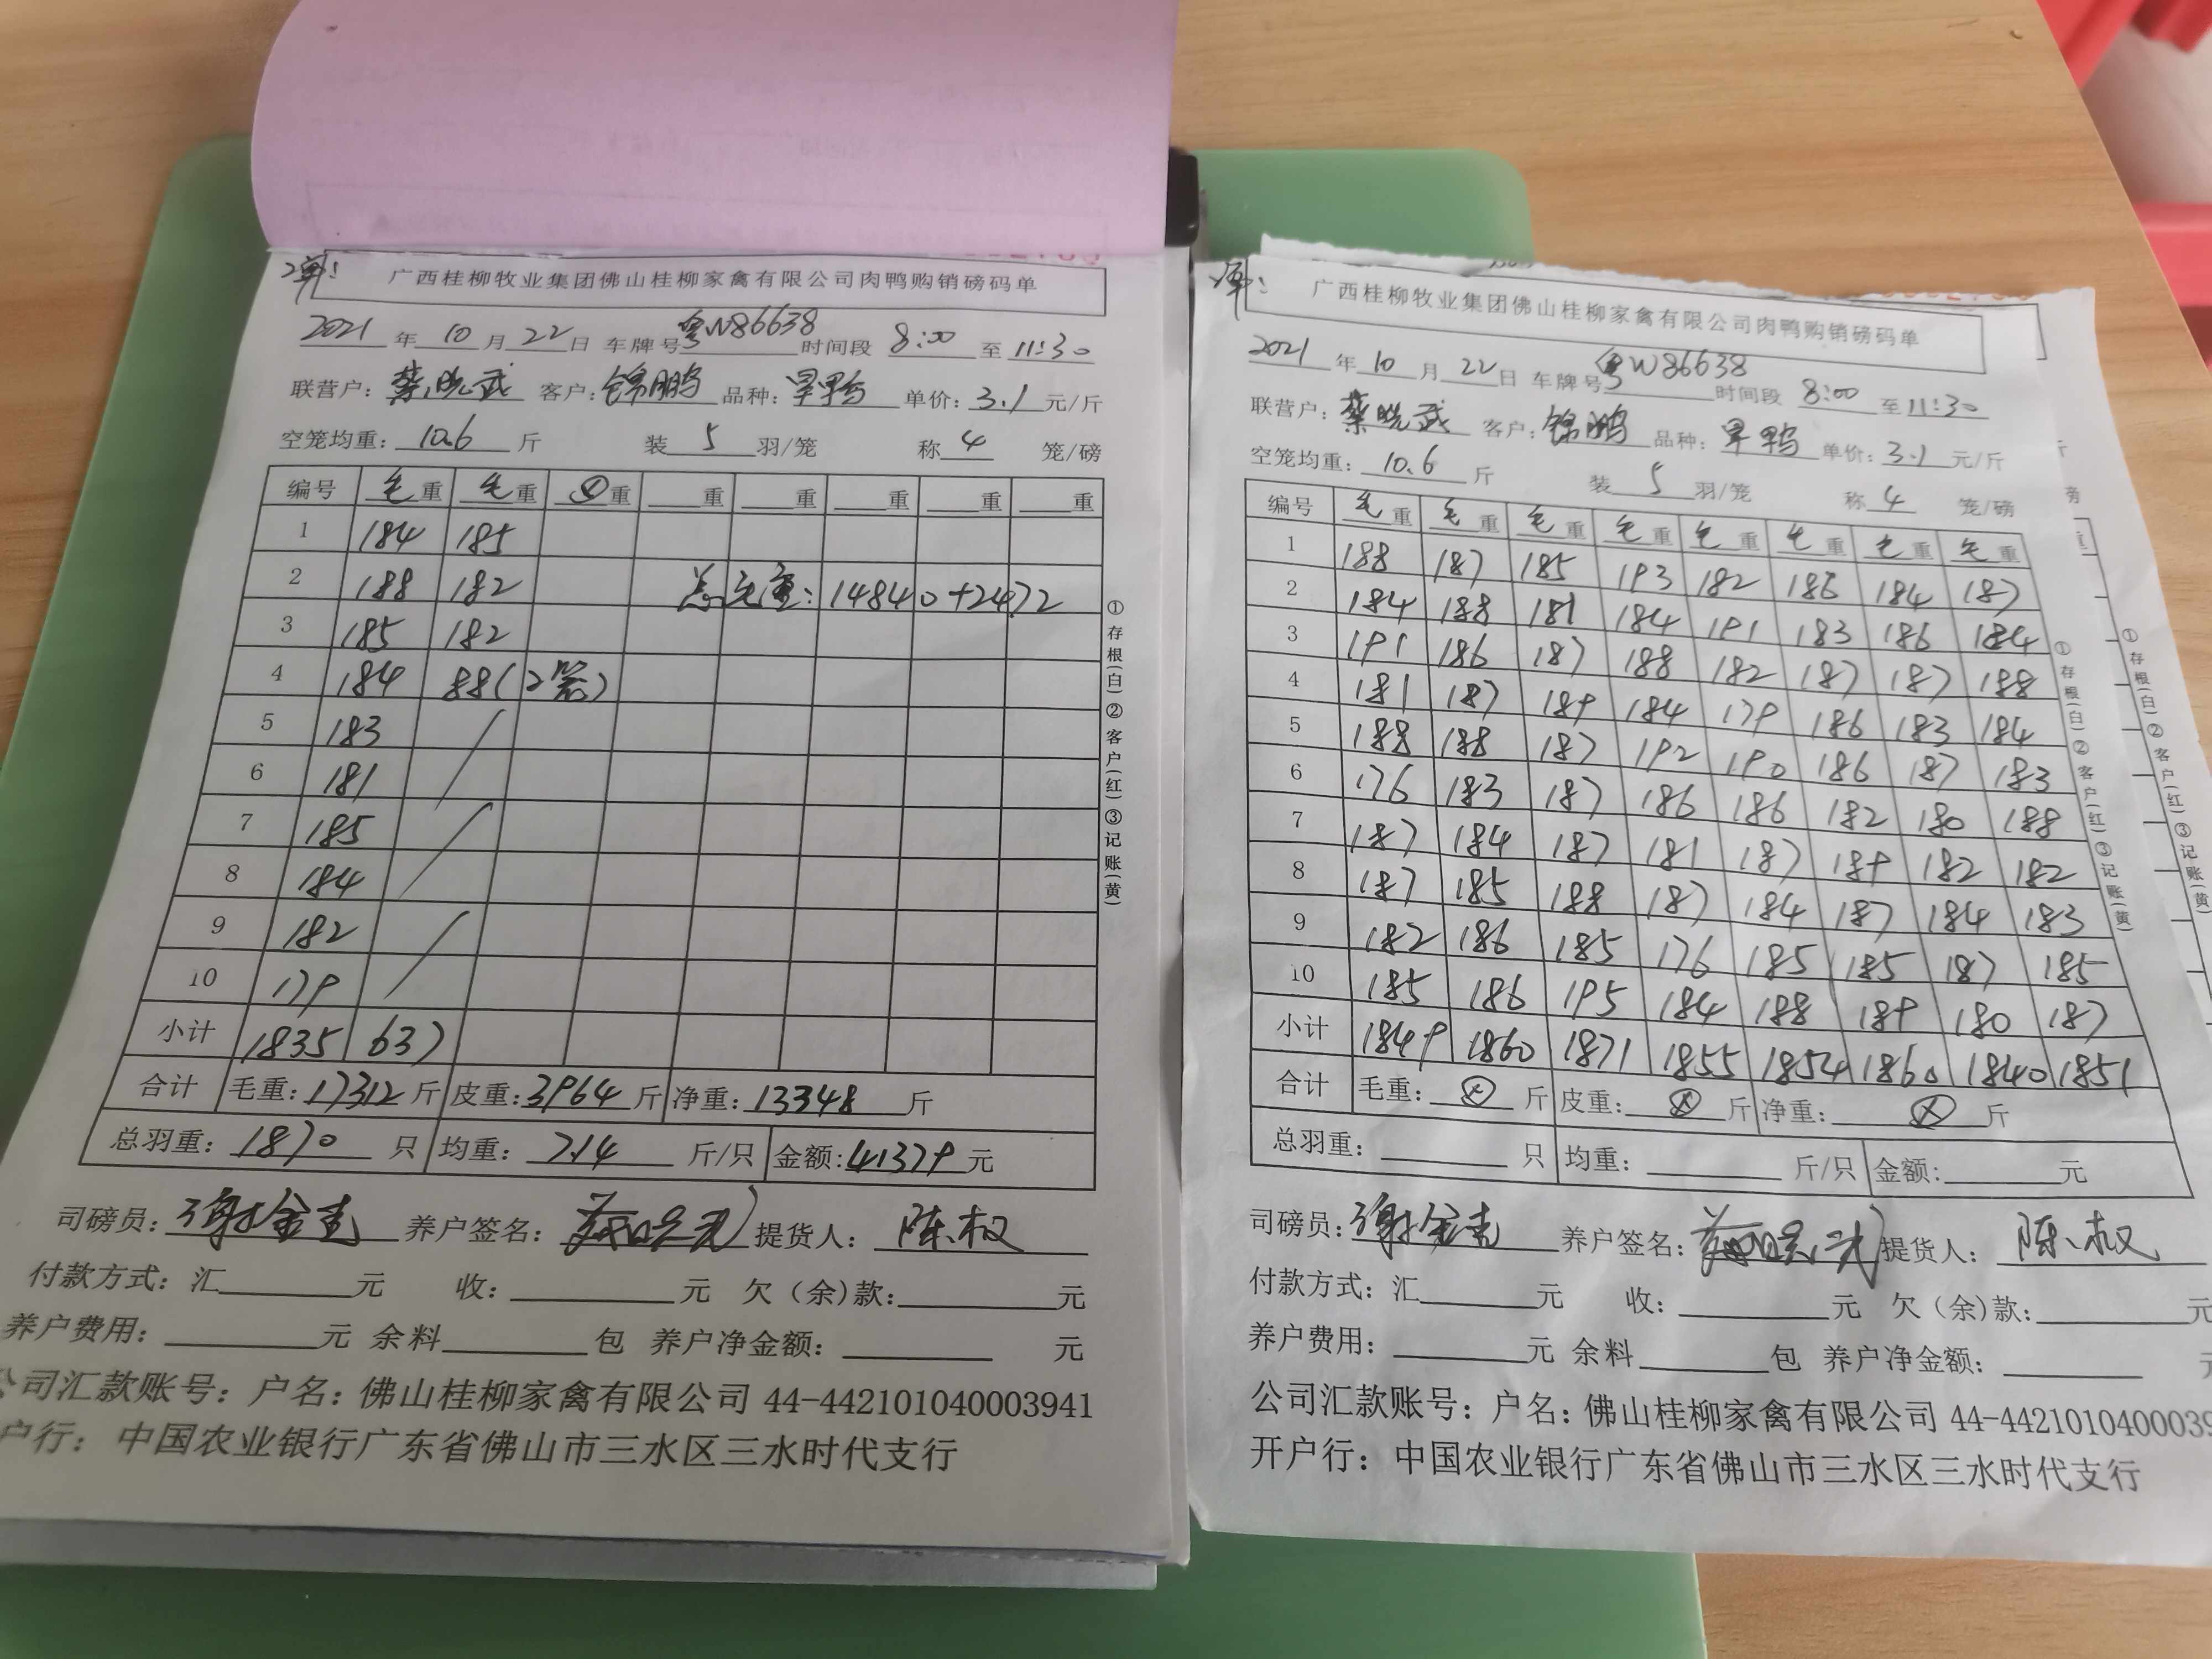 2单:
广西桂柳牧业集团佛山桂柳家禽有限公司肉鸭购销磅码单
2021 年 10 月 22 日 车牌号 粤W86638 时间段 8:00 至 11:30
联营户: 蔡晓武 客户: 锦鹏 品种: 旱鸭 单价: 3.1 元/斤
空笼均重: 10.6 斤 装 5 羽/笼 称 4 笼/磅
编号 毛重 毛重 ⊗重 重 重 重 重 重
1 184 185
2 188 182 总毛重: 14840+2472
3 185 182
4 184 88(2笼)
5 183
6 181
7 185
8 184
9 182
10 179
小计 1835 637
合计 毛重: 17312 斤 皮重: 3964 斤 净重: 13348 斤
总羽重: 1870 只 均重: 7.14 斤/只 金额: 41379 元
司磅员: 谢金志 养户签名: 蔡晓武 提货人: 陈权
付款方式: 汇 元 收: 元 欠（余)款: 元
养户费用: 元 余料 包 养户净金额: 元
公司汇款账号: 户名: 佛山桂柳家禽有限公司 44-442101040003941
户行: 中国农业银行广东省佛山市三水区三水时代支行
①存根(白)②客户(红)③记账(黄)
广西桂柳牧业集团佛山桂柳家禽有限公司肉鸭购销磅码单
2021 年 10 月 22 日 车牌号 粤W86638 时间段 8:00 至 11:30
联营户: 蔡晓武 客户: 锦鹏 品种: 旱鸭 单价: 3.1 元/斤
空笼均重: 10.6 斤 装 5 羽/笼 称 4 笼/磅
编号 毛重 毛重 毛重 毛重 毛重 毛重 毛重 毛重
1 188 187 185 193 182 186 184 187
2 184 188 181 184 191 183 186 184
3 191 186 187 188 182 187 187 188
4 181 187 189 184 179 186 183 184
5 188 188 187 192 190 186 187 183
6 176 183 187 186 186 182 180 188
7 187 184 187 181 187 189 182 182
8 187 185 188 187 184 187 184 183
9 182 186 185 176 185 185 187 185
10 185 186 195 184 188 189 180 187
小计 1849 1860 1871 1855 1854 1860 1840 1851
合计 毛重: ⊗ 斤 皮重: ⊗ 斤 净重: ⊗ 斤
总羽重: 只 均重: 斤/只 金额: 元
司磅员: 谢金志 养户签名: 蔡晓武 提货人: 陈权
付款方式: 汇 元 收: 元 欠（余)款: 元
养户费用: 元 余料 包 养户净金额: 元
公司汇款账号: 户名: 佛山桂柳家禽有限公司 44-4421010400039
开户行: 中国农业银行广东省佛山市三水区三水时代支行
①存根(白)②客户(红)③记账(黄)
①存根(白)②客户(红)③记账(黄)